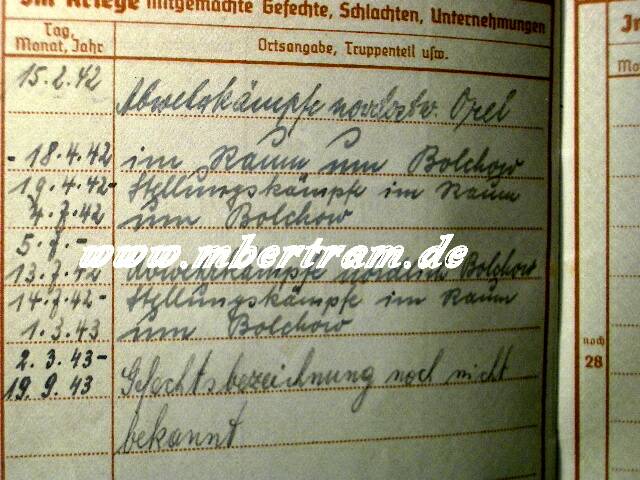 Im Kriege mitgemachte Gefechte, Schlachten, Unternehmungen
Tag, Monat, Jahr
Ortsangabe, Truppenteil usw.
15.2.42
Abwehrkämpfe nordostw. Orel
- 18.4.42 im Raum um Bolchow
19.4.42- Stellungskämpfe im Raum
4.7.42 um Bolchow
5.7.-
www.mbertram.de
13.7.42 Abwehrkämpfe nördlich Bolchow
14.7.42- Stellungskämpfe im Raum
1.3.43 um Bolchow
2.3.43-
19.9.43 Gefechtsbezeichnung noch nicht
bekannt
noch
28